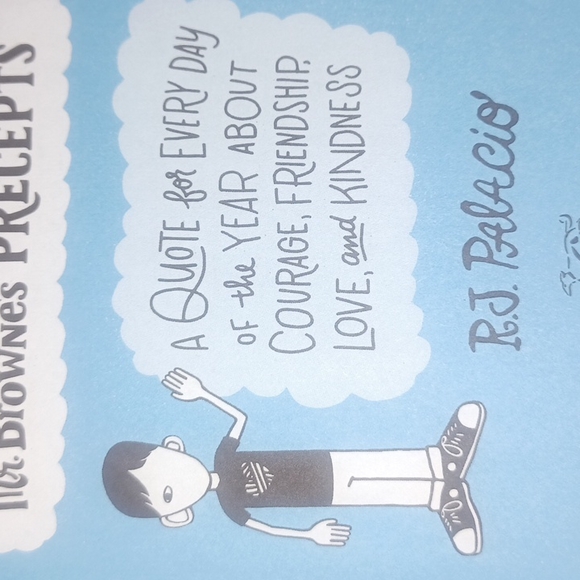 Mr. Browne's PRECEPTS
A QUOTE for EVERY DAY
of the YEAR ABOUT
COURAGE, FRIENDSHIP,
LOVE, and KINDNESS
R.J. PALACIO